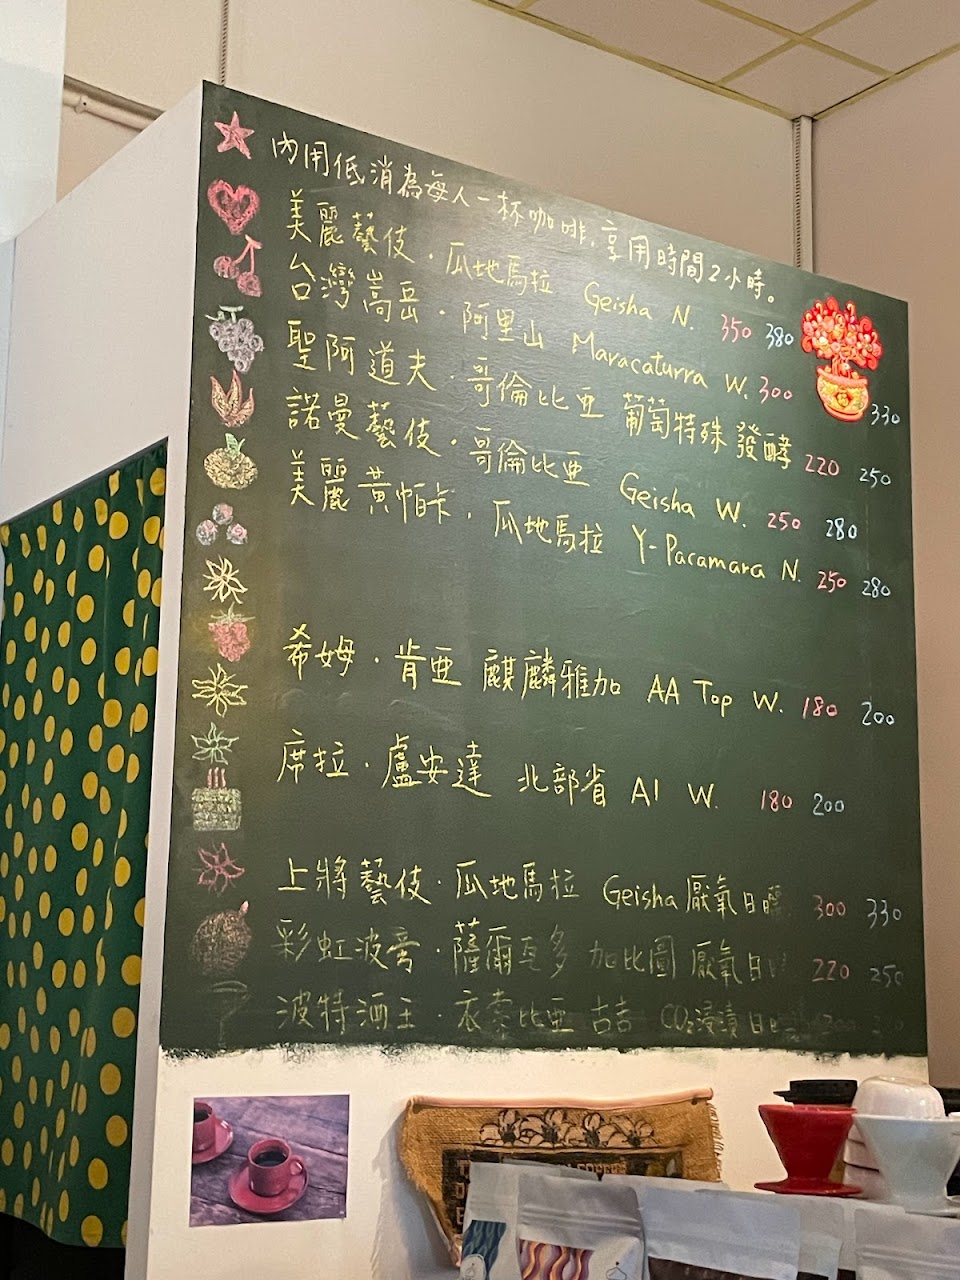 內用低消為每人一杯咖啡，享用時間2小時。
美麗藝伎．瓜地馬拉 Geisha N. 350 380
台灣嵩岳．阿里山 Maracaturra W. 300 330
聖阿道夫．哥倫比亞 葡萄特殊發酵 220 250
諾曼藝伎．哥倫比亞 Geisha W. 250 280
美麗黃帕卡．瓜地馬拉 Y-Pacamara N. 250 280
希姆．肯亞 麒麟雅加 AA Top W. 180 200
席拉．盧安達 北部省 A1 W. 180 200
上將藝伎．瓜地馬拉 Geisha 厭氧日曬 300 330
彩虹波旁．薩爾瓦多 加比圖 厭氧日 220 250
波特酒王．衣索比亞 古吉 CO2浸漬日